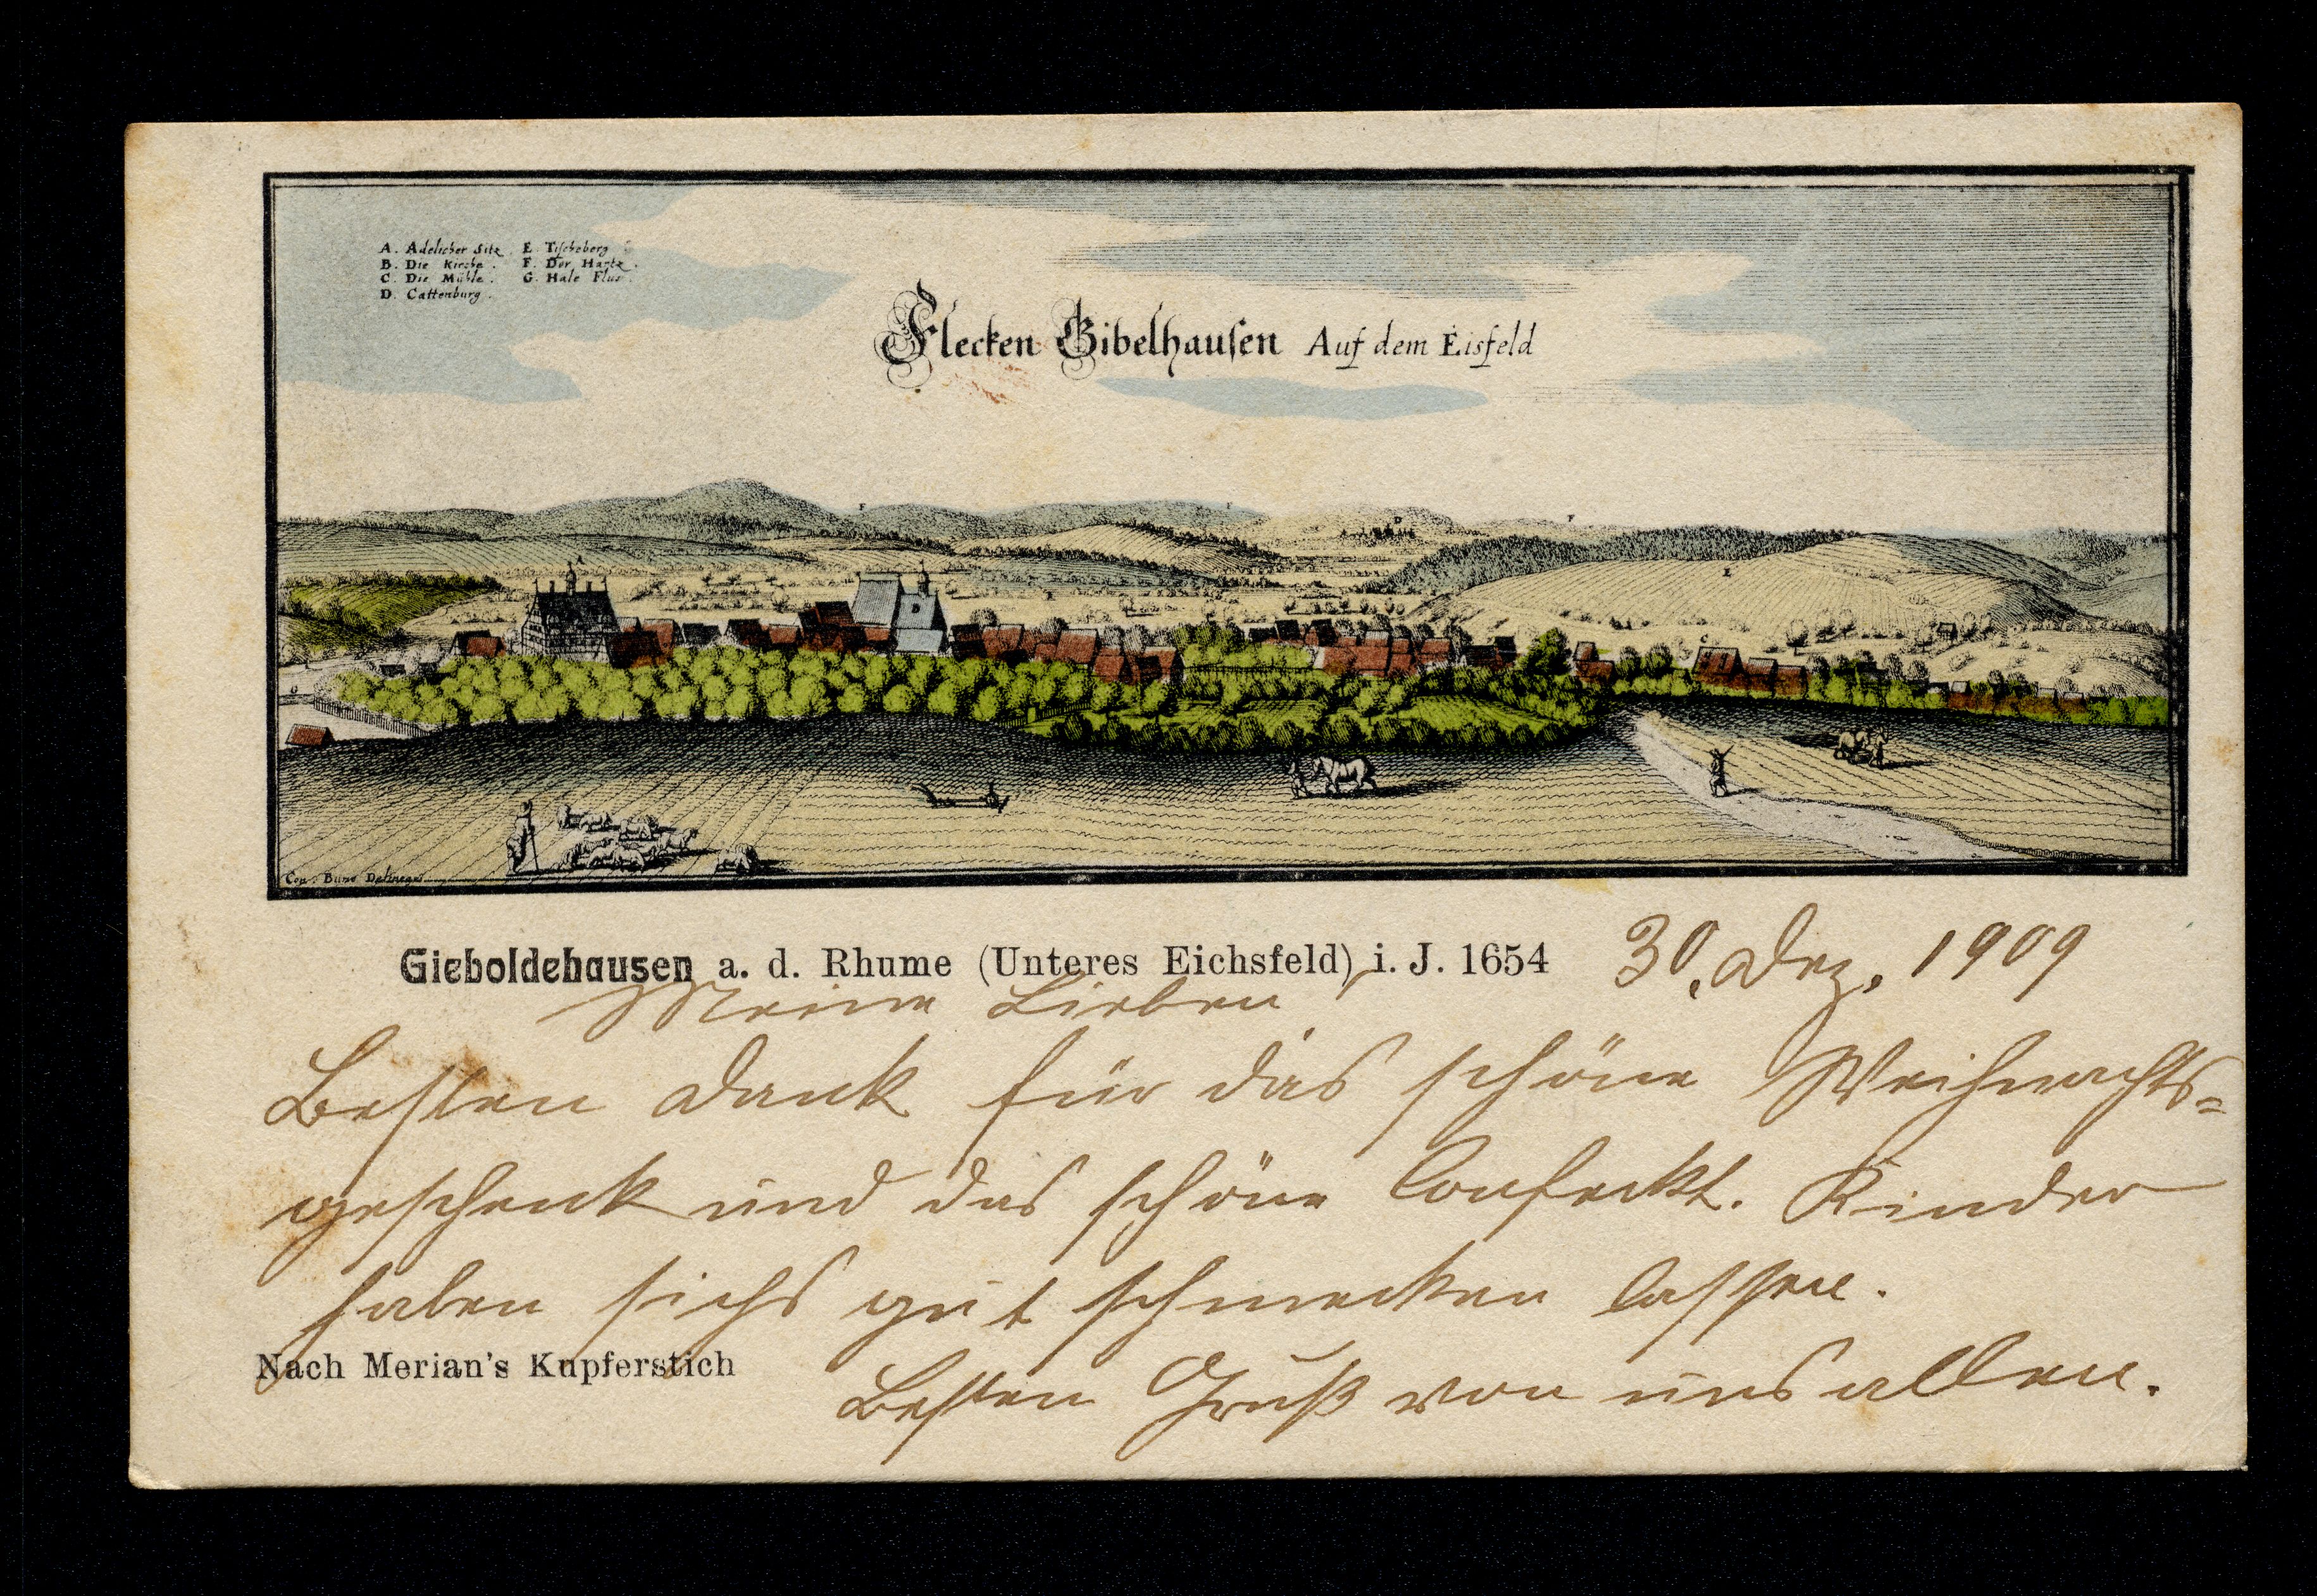 A. Adelicher Sitz. E. Tischeberg
B. Die Kirche. F. Der Hartz.
C. Die Mühle. G. Hale Flus.
D. Cattenburg.
Flecken Gibelhauſen Auf dem Eisfeld
F F D F
A E
B
C
G
Con. Buno Delineav.
Gieboldehausen a. d. Rhume (Unteres Eichsfeld) i. J. 1654 30. Dez. 1909
Meine Lieben
Besten Dank für das schöne Weihnachts=
geschenk und das schöne Confeckt. Kinder
haben sichs gut schmecken lassen.
Nach Merian's Kupferstich
Besten Gruß von uns allen.